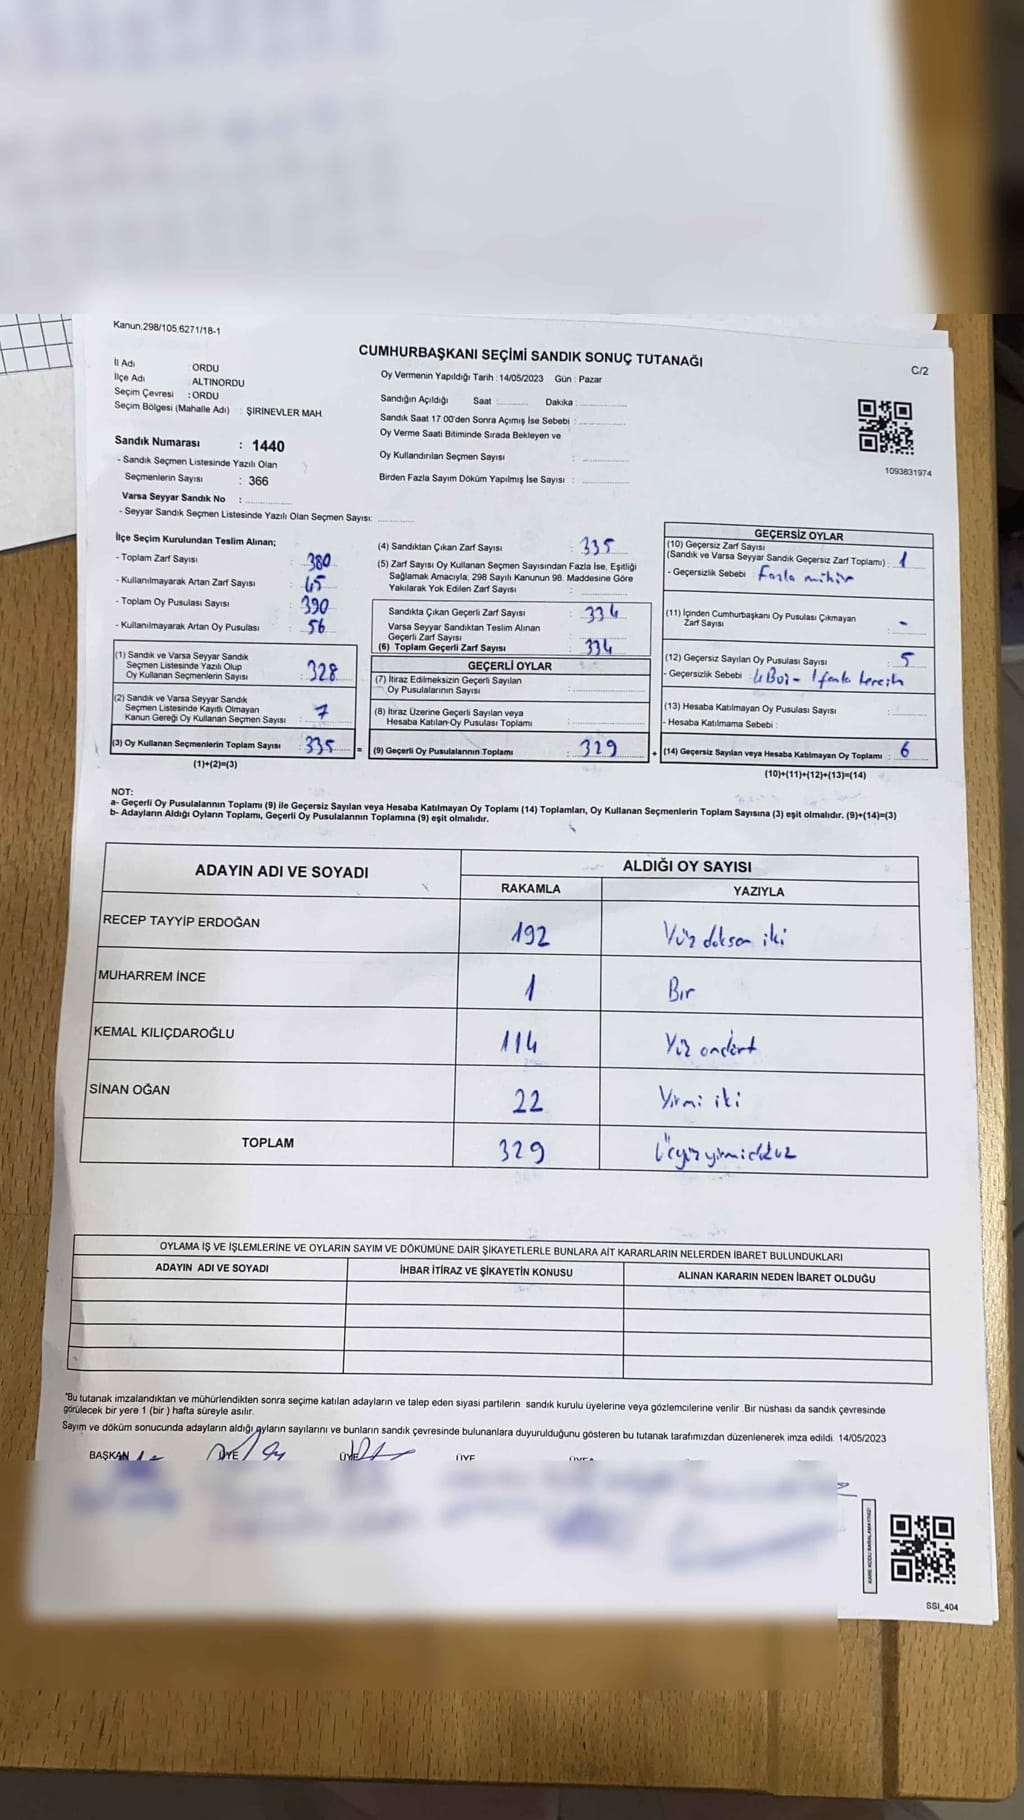 Kanun,298/105,6271/18-1
CUMHURBAŞKANI SEÇİMİ SANDIK SONUÇ TUTANAĞI
C/2
İl Adı : ORDU
İlçe Adı : ALTINORDU
Seçim Çevresi : ORDU
Seçim Bölgesi (Mahalle Adı) : ŞİRİNEVLER MAH.
Sandık Numarası : 1440
- Sandık Seçmen Listesinde Yazılı Olan
Seçmenlerin Sayısı : 366
Varsa Seyyar Sandık No :
- Seyyar Sandık Seçmen Listesinde Yazılı Olan Seçmen Sayısı:
Oy Vermenin Yapıldığı Tarih : 14/05/2023 Gün : Pazar
Sandığın Açıldığı Saat : Dakika :
Sandık Saat 17.00'den Sonra Açımış İse Sebebi :
Oy Verme Saati Bitiminde Sırada Bekleyen ve
Oy Kullandırılan Seçmen Sayısı :
Birden Fazla Sayım Döküm Yapılmış İse Sayısı :
1093831974
İlçe Seçim Kurulundan Teslim Alınan;
- Toplam Zarf Sayısı : 380
- Kullanılmayarak Artan Zarf Sayısı : 45
- Toplam Oy Pusulası Sayısı : 390
- Kullanılmayarak Artan Oy Pusulası : 56
(1) Sandık ve Varsa Seyyar Sandık
Seçmen Listesinde Yazılı Olup
Oy Kullanan Seçmenlerin Sayısı : 328
(2) Sandık ve Varsa Seyyar Sandık
Seçmen Listesinde Kayıtlı Olmayan
Kanun Gereği Oy Kullanan Seçmen Sayısı : 7
(3) Oy Kullanan Seçmenlerin Toplam Sayısı : 335 =
(1)+(2)=(3)
(4) Sandıktan Çıkan Zarf Sayısı : 335
(5) Zarf Sayısı Oy Kullanan Seçmen Sayısından Fazla İse, Eşitliği
Sağlamak Amacıyla; 298 Sayılı Kanunun 98. Maddesine Göre
Yakılarak Yok Edilen Zarf Sayısı :
Sandıkta Çıkan Geçerli Zarf Sayısı : 334
Varsa Seyyar Sandıktan Teslim Alınan
Geçerli Zarf Sayısı :
(6) Toplam Geçerli Zarf Sayısı : 334
GEÇERLİ OYLAR
(7) İtiraz Edilmeksizin Geçerli Sayılan
Oy Pusulalarının Sayısı :
(8) İtiraz Üzerine Geçerli Sayılan veya
Hesaba Katılan Oy Pusulası Toplamı :
(9) Geçerli Oy Pusulalarının Toplamı : 329 +
GEÇERSİZ OYLAR
(10) Geçersiz Zarf Sayısı
(Sandık ve Varsa Seyyar Sandık Geçersiz Zarf Toplamı) : 1
- Geçersizlik Sebebi : Fazla mühür
(11) İçinden Cumhurbaşkanı Oy Pusulası Çıkmayan
Zarf Sayısı : -
(12) Geçersiz Sayılan Oy Pusulası Sayısı : 5
- Geçersizlik Sebebi : 4 Boş - 1 fazla tercih
(13) Hesaba Katılmayan Oy Pusulası Sayısı :
- Hesaba Katılmama Sebebi :
(14) Geçersiz Sayılan veya Hesaba Katılmayan Oy Toplamı : 6
(10)+(11)+(12)+(13)=(14)
NOT:
a- Geçerli Oy Pusulalarının Toplamı (9) ile Geçersiz Sayılan veya Hesaba Katılmayan Oy Toplamı (14) Toplamları, Oy Kullanan Seçmenlerin Toplam Sayısına (3) eşit olmalıdır. (9)+(14)=(3)
b- Adayların Aldığı Oyların Toplamı, Geçerli Oy Pusulalarının Toplamına (9) eşit olmalıdır.
ADAYIN ADI VE SOYADI
ALDIĞI OY SAYISI
RAKAMLA YAZIYLA
RECEP TAYYİP ERDOĞAN 192 Yüz doksan iki
MUHARREM İNCE 1 Bir
KEMAL KILIÇDAROĞLU 114 Yüz ondört
SİNAN OĞAN 22 Yirmi iki
TOPLAM 329 Üçyüzyirmidokuz
OYLAMA İŞ VE İŞLEMLERİNE VE OYLARIN SAYIM VE DÖKÜMÜNE DAİR ŞİKAYETLERLE BUNLARA AİT KARARLARIN NELERDEN İBARET BULUNDUKLARI
ADAYIN ADI VE SOYADI İHBAR İTİRAZ VE ŞİKAYETİN KONUSU ALINAN KARARIN NEDEN İBARET OLDUĞU
*Bu tutanak imzalandıktan ve mühürlendikten sonra seçime katılan adayların ve talep eden siyasi partilerin sandık kurulu üyelerine veya gözlemcilerine verilir .Bir nüshası da sandık çevresinde
görülecek bir yere 1 (bir ) hafta süreyle asılır.
Sayım ve döküm sonucunda adayların aldığı oyların sayılarını ve bunların sandık çevresinde bulunanlara duyurulduğunu gösteren bu tutanak tarafımızdan düzenlenerek imza edildi. 14/05/2023
BAŞKAN ÜYE ÜYE ÜYE
SSI_404